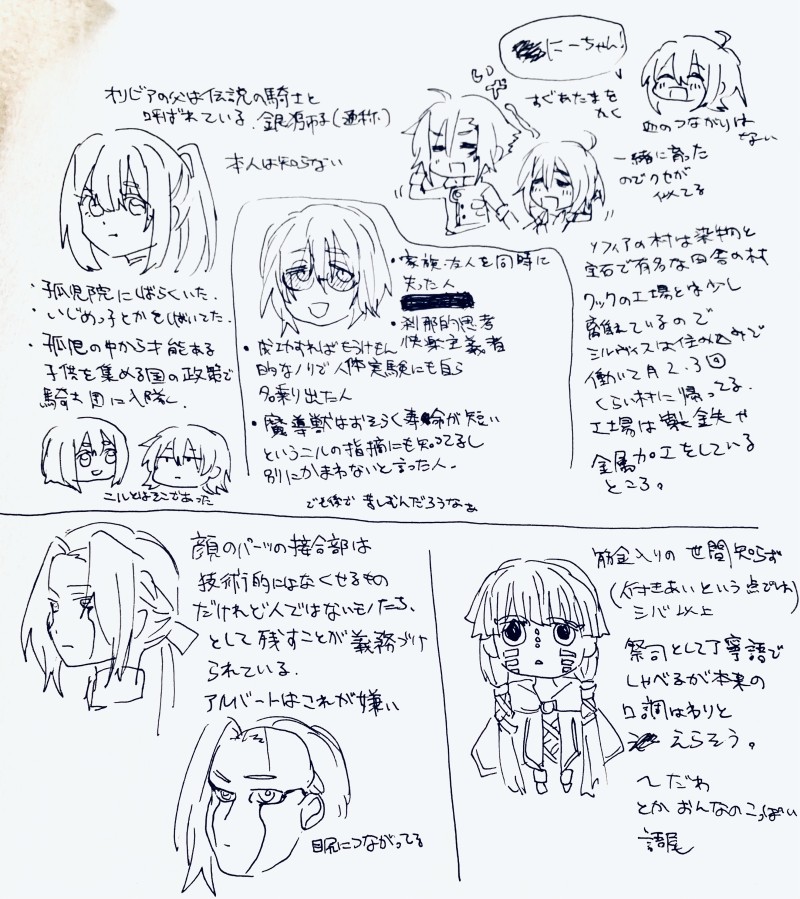 オリビアの父は伝説の騎士と
呼ばれている。銀獅子(通称)
本人は知らない
・孤児院にしばらくいた。
・いじめっ子とかをしばいてた。
・孤児の中から才能ある
子供を集める国の政策で
騎士団に入隊し
ニルとはそこであった
・家族・友人を同時に
失った人
・刹那的思考
快楽主義者
・成功すればもうけもん
的なノリで人体実験にも自ら
名乗り出た人
・魔導獣はおそらく寿命が短い
というニルの指摘にも知ってるし
別にかまわないと言った人。
でも後で苦しむんだろうなぁ
にーちゃん!
いや
すぐあたまを
かく
血のつながりは
ない
一緒に育った
のでクセが
似てる
ソフィアの村は染物と
宝石で有名な田舎の村
クックの工場とは少し
離れているので
シルヴィスは住み込みで
働いて月2.3回
くらい村に帰ってる。
工場は製鉄や
金属加工をしている
ところ。
顔のパーツの接合部は
技術的にはなくせるもの
だけれど人ではないモノたち、
として残すことが義務づけ
られている。
アルバートはこれが嫌い
目尻につながってる
筋金入りの世間知らず
(人付きあいという点では
シバ以上
祭司として丁寧語で
しゃべるが本来の
口調はわりと
えらそう。
〜だわ
とかおんなのこっぽい
語尾